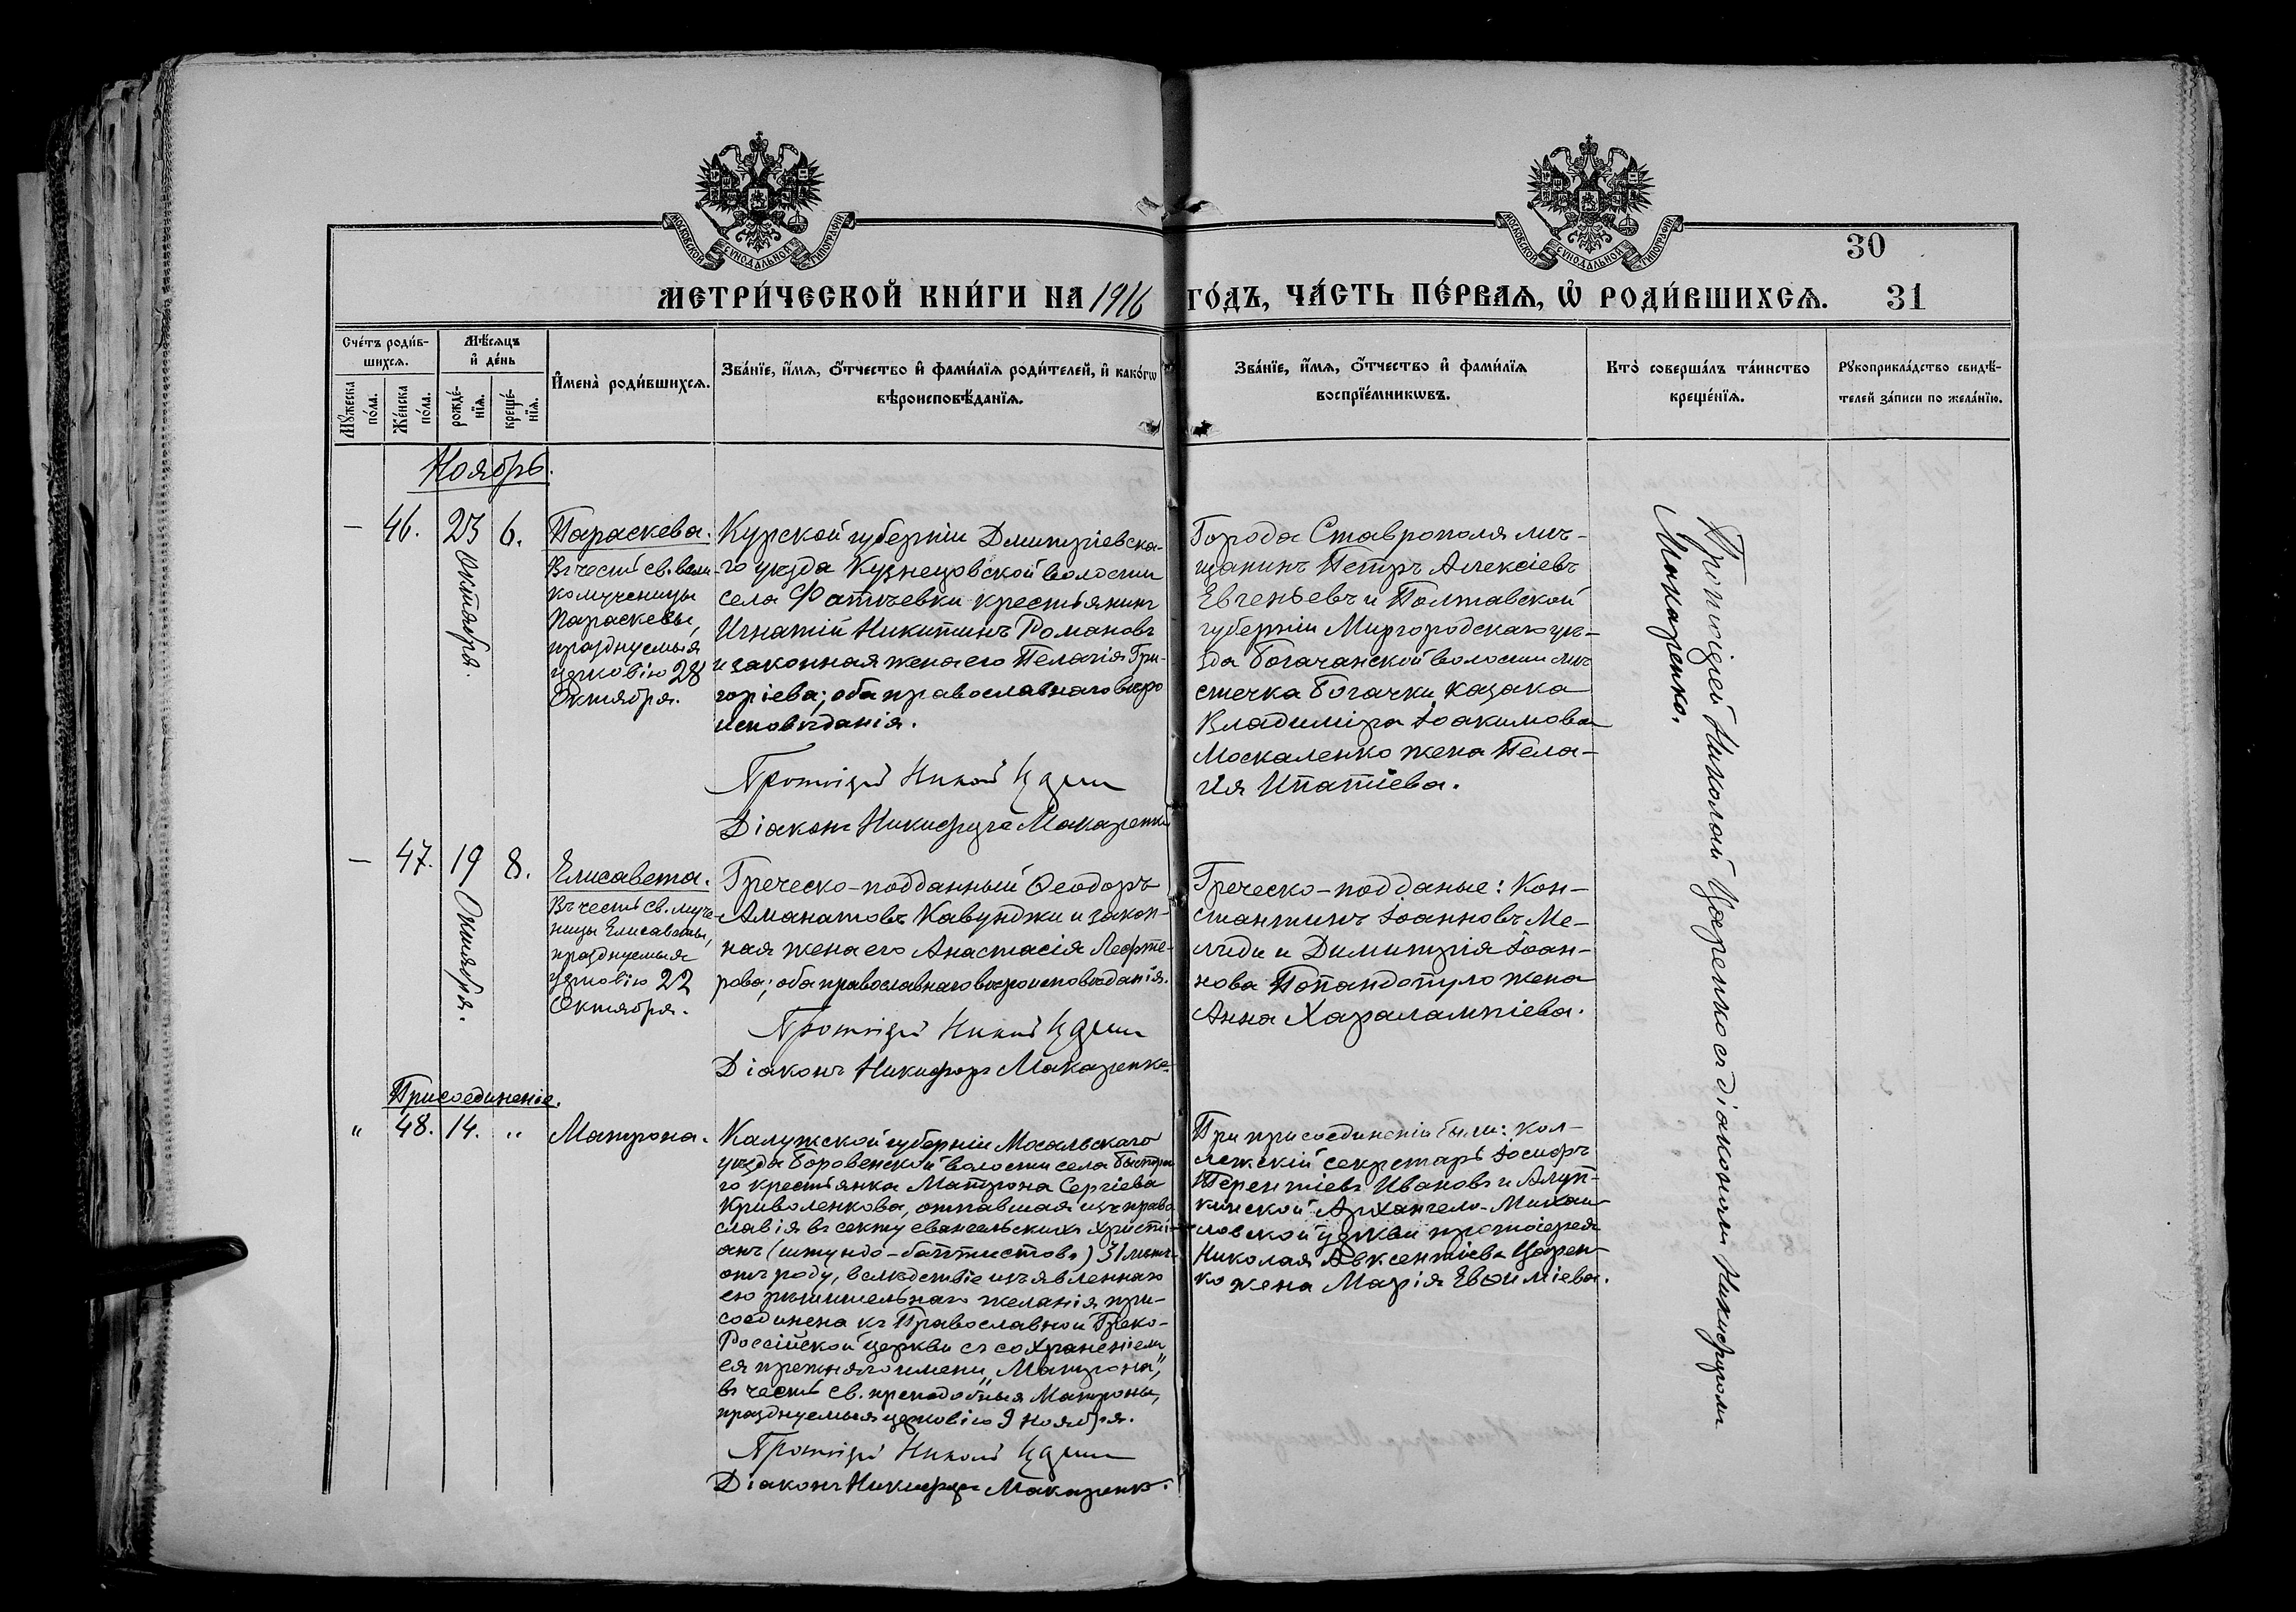 МОСКОВСКОЙ СѴНОДАЛЬНОЙ ТИПОГРАФІИ
МОСКОВСКОЙ СѴНОДАЛЬНОЙ ТИПОГРАФІИ
30
МЕТРИ́ЧЕСКОЙ КНИ́ГИ НА 1916 ГО́ДЪ, ЧА́СТЬ ПЕ́РВАѦ, Ѽ РОДИ́ВШИХСѦ. 31
Сче́тъ роди́в-
шихсѧ.
Мꙋ́жеска
по́ла.
Же́нска
по́ла.
Мѣ́сѧцъ
и҆ де́нь
рожде́-
нїѧ.
креще́-
нїѧ.
И҆мена̀ роди́вшихсѧ.
Зва́нїе, и҆́мѧ, ѻ҆́тчество и҆ фами́лїѧ роди́телей, и҆ како́гѡ
вѣроисповѣ́данїѧ.
Зва́нїе, и҆́мѧ, ѻ҆́тчество и҆ фами́лїѧ
воспрїе́мникѡвъ.
Кто̀ соверша́лъ та́инство
креще́нїѧ.
Рꙋкоприкла́дство свидѣ́-
телей за́писи по жела́нїю.
Ноябрь.
— 46. 23 Октября. 6.
Параскева.
Въ честь св. вели-
комученицы
Параскевы,
празднуемыя
церковію 28
Октября.
Курской губерніи Дмитріевска-
го уѣзда Кузнецовской волости
села Фатѣевки крестьянинъ
Игнатій Никитинъ Романовъ
и законная жена его Пелагія Гри-
горіева; оба православнаго вѣро
исповѣданія.
Протоіерей Николай
Діаконъ Никифоръ Макаренко
Города Ставрополя мѣ-
щанинъ Петръ Алексіевъ
Евгеньевъ и Полтавской
губерніи Миргородскаго уѣ-
зда Богачанской волости мѣ
стечка Богачки казака
Владиміра Іоакимова
Москаленко жена Пела-
гія Ипатіева.
Протоіерей Николай Царенко съ діакономъ Никифоромъ
Макаренко.
— 47. 19 Октября. 8.
Елисавета.
Въ честь св. муче-
ницы Елисаветы,
празднуемыя
церковію 22
Октября.
Греческо-подданный Ѳеодоръ
Аманатовъ Кавунджи и закон-
ная жена его Анастасія Лефте-
рова; оба православнаго вѣроисповѣданія.
Протоіерей Николай
Діаконъ Никифоръ Макаренко
Греческо-подданые: Кон-
стантинъ Іоанновъ Ме-
лиди и Димитрія Іоан-
нова Попандопуло жена
Анна Харалампіева.
Присоединеніе.
" 48. 14. "
Матрона.
Калужской губерніи Мосальскаго
уѣзда Боровенской волости села
го крестьянка Матрона Сергіева
Криволенкова, отпавшая изъ право
славія въ секту евангельскихъ христі-
анъ (штундо-баптистовъ) 31 лѣтъ
отъ роду, вслѣдствіе изъявленнаго
ею рѣшительнаго желанія при-
соединена къ Православной Греко-
Россійской церкви съ сохраненіемъ
ея прежняго имени „Матрона",
въ честь св. преподобныя Матроны,
празднуемыя церковію 9 ноября.
Протоіерей Николай
Діаконъ Никифоръ Макаренко.
При присоединеніи были: кол-
лежскій секретарь Іосифъ
Терентіевъ Ивановъ и Алуп-
кинской Архангело-Михаи-
ловской церкви протоіерея
Николая Авксентіева Царен-
ко жена Марія Евѳиміева.